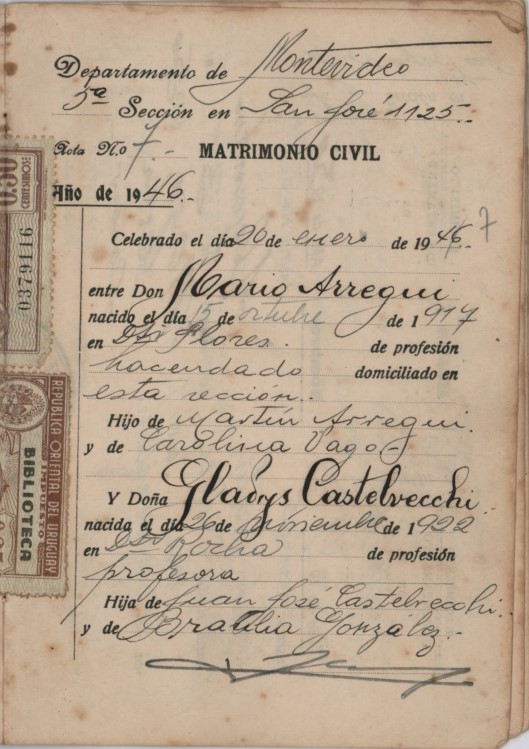 Departamento de Montevideo
5ª Sección en San José 1125.-
Acta N.o 7.- MATRIMONIO CIVIL
Año de 1946.-
Celebrado el día 20 de enero de 1946.- 7
entre Don Mario Arregui
nacido el día 15 de octubre de 1917
en Dto Flores. de profesión
hacendado domiciliado en
esta sección.-
Hijo de Martín Arregui.
y de Carolina Vago.-
Y Doña Gladys Castelvecchi.
nacida el día 26 de noviembre de 1922
en Dto Rocha de profesión
profesora
Hija de Juan José Castelvecchi.
y de Brasilia González.-
0.50
CENTESIMOS
0379116
REPUBLICA ORIENTAL DEL URUGUAY
IMPUESTO
BIBLIOTECA